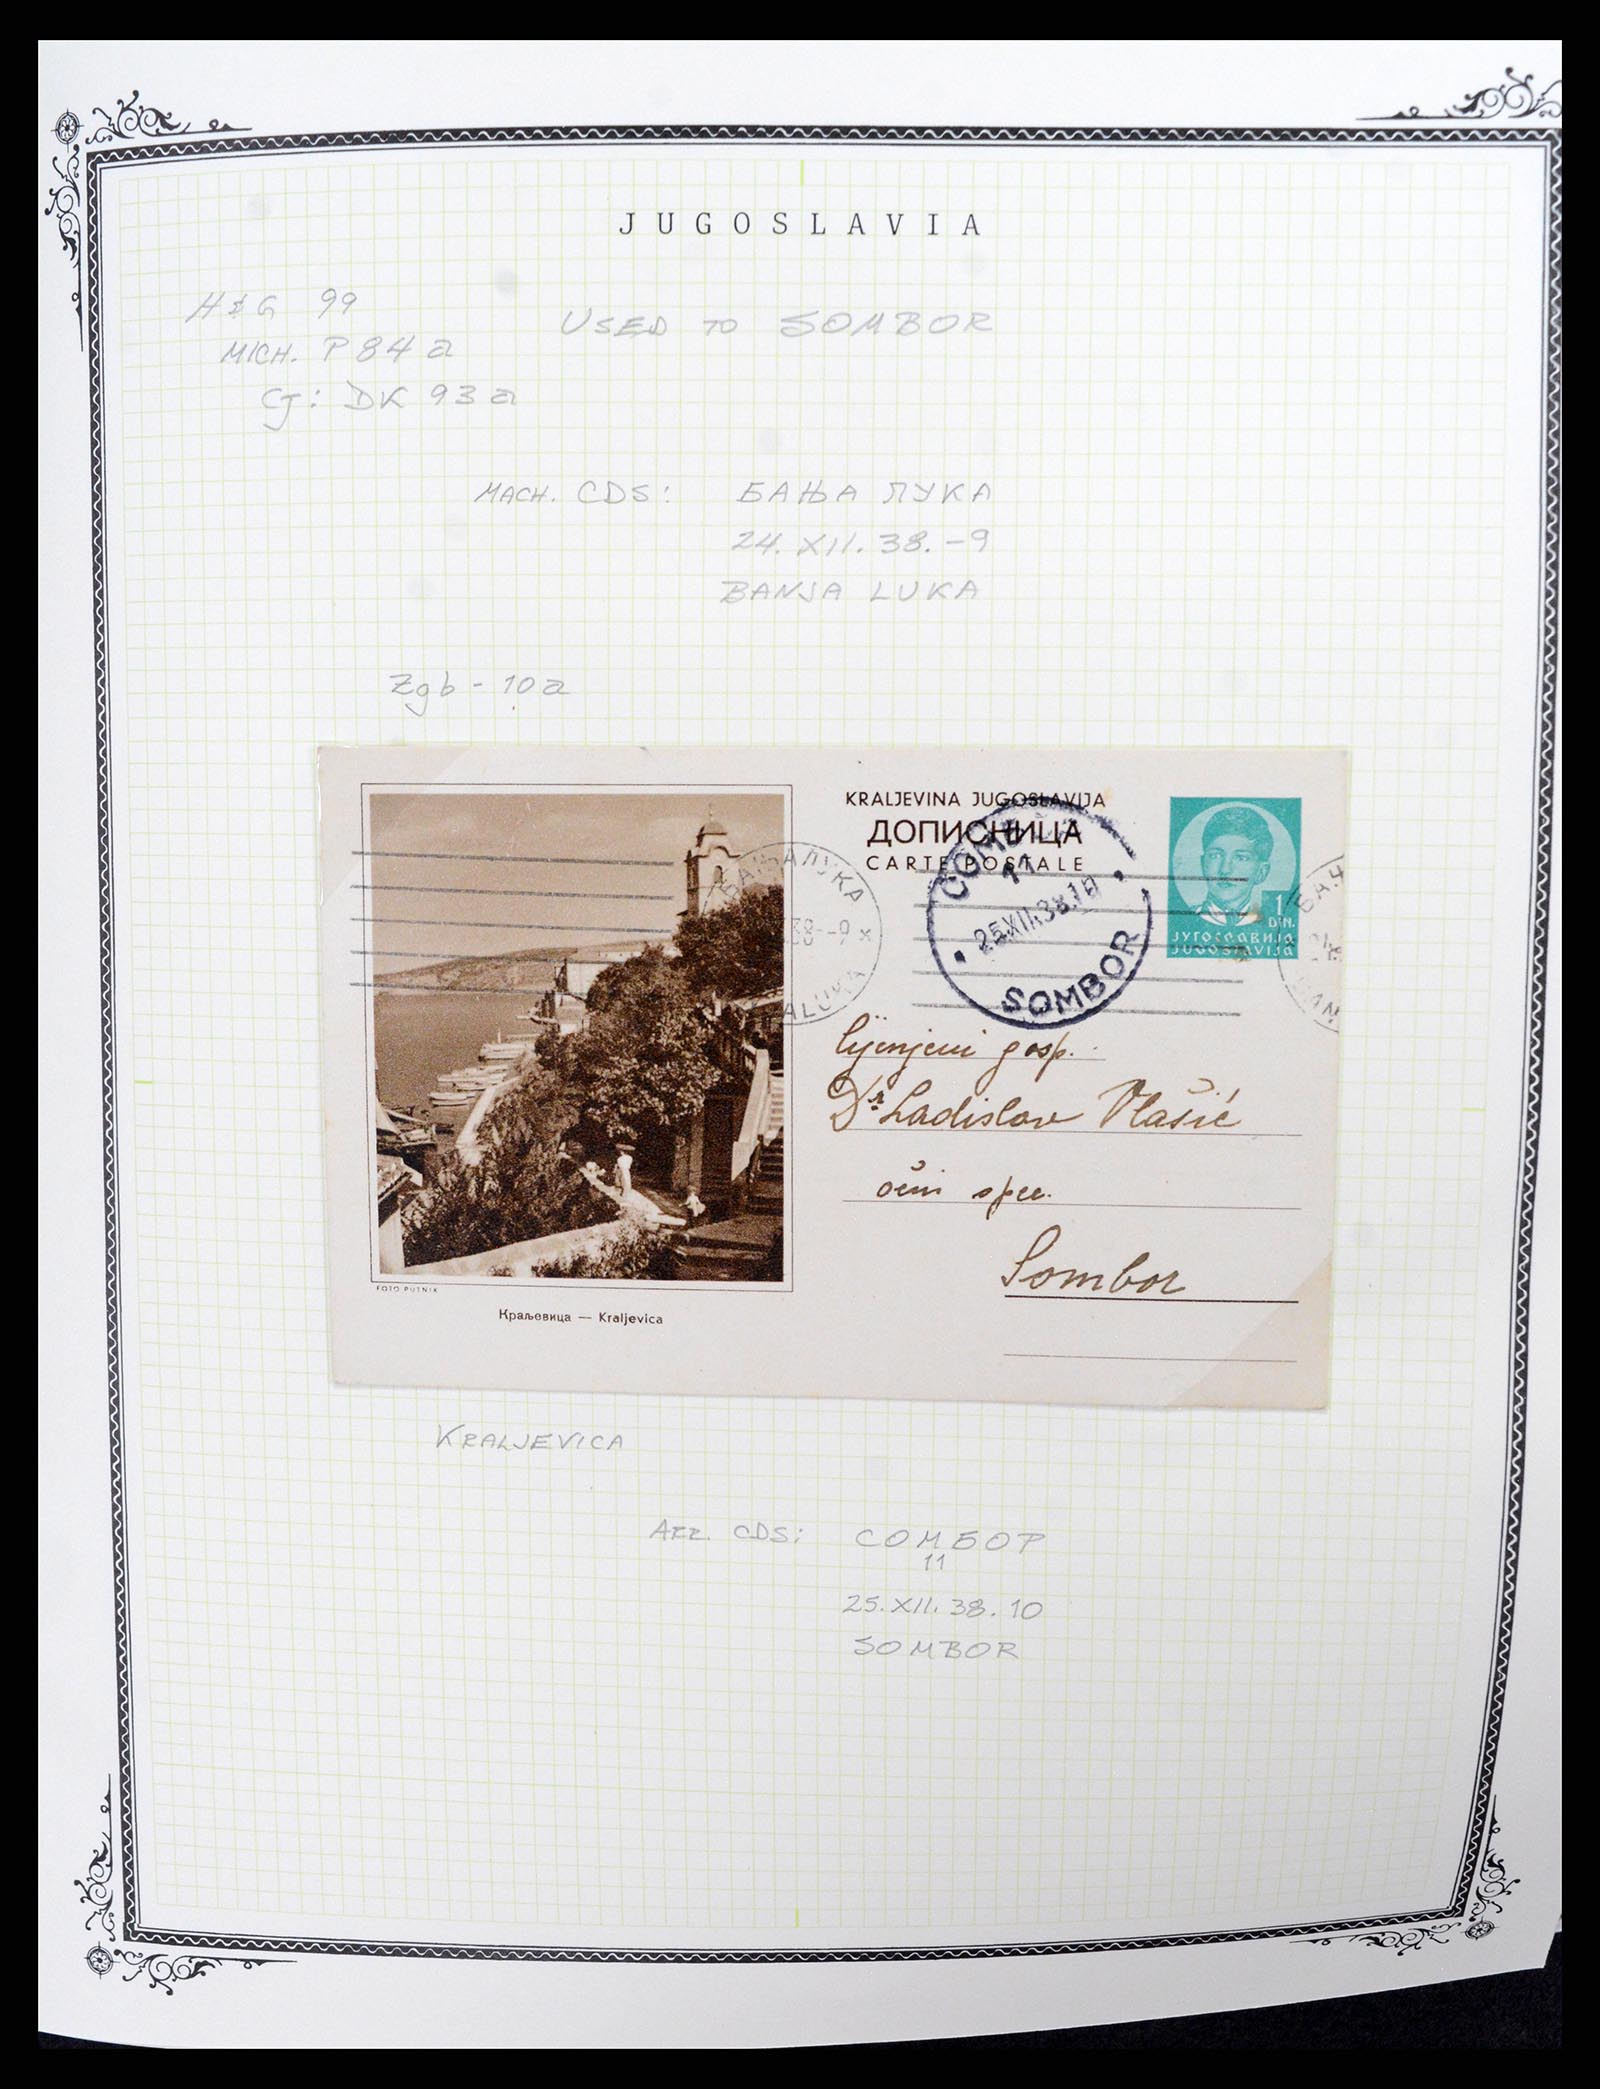 JUGOSLAVIA
H&G 99
USED TO SOMBOR
MICH. P84a
CJ: DK 93a
MACH. CDS: БАЊА ЛУКА
24.XII.38.-9
BANJA LUKA
Zgb-10a
KRALJEVINA JUGOSLAVIJA
ДОПИСНИЦА
CARTE POSTALE
1
DIN.
ЈУГОСЛАВИЈА
JUGOSLAVIJA
11
25.XII.38.10
SOMBOR
БАЊАЛУКА
38--9
ALUKA
Cijenjeni gosp.
Dr Ladislav Vlašić
očni spec.
Sombor
FOTO PUTNIK
Краљевица — Kraljevica
KRALJEVICA
ARR. CDS: СОМБОР
11
25.XII.38.10
SOMBOR